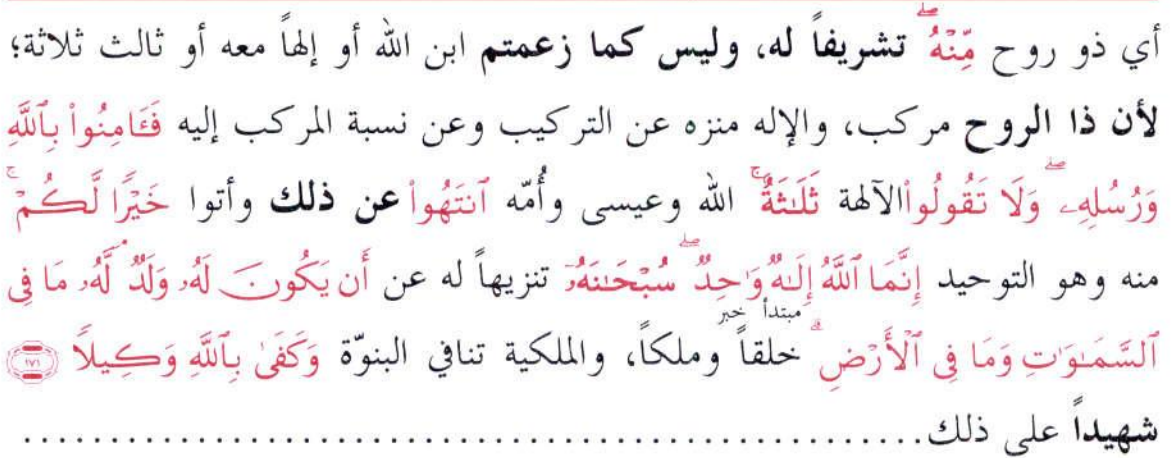 أي ذو روح مِّنْهُ ۖ تشريفاً له، وليس كما زعمتم ابن الله أو إلهاً معه أو ثالث ثلاثة؛
لأن ذا الروح مركب، والإله منزه عن التركيب وعن نسبة المركب إليه فَـَٔامِنُوا۟ بِٱللَّهِ
وَرُسُلِهِۦ ۖ وَلَا تَقُولُوا۟ الآلهة ثَلَـٰثَةٌ ۚ الله وعيسى وأُمّه ٱنتَهُوا۟ عن ذلك وأتوا خَيْرًۭا لَّكُمْ ۚ
منه وهو التوحيد إِنَّمَا ٱللَّهُ إِلَـٰهٌۭ وَٰحِدٌۭ ۖ سُبْحَـٰنَهُۥٓ تنزيهاً له عن أَن يَكُونَ لَهُۥ وَلَدٌۭ ۘ لَّهُۥ مَا فِى
مبتدأ خبر
ٱلسَّمَـٰوَٰتِ وَمَا فِى ٱلْأَرْضِ ۗ خلقاً وملكاً، والملكية تنافي البنوّة وَكَفَىٰ بِٱللَّهِ وَكِيلًۭا ١٧١
شهيداً على ذلك..................................................